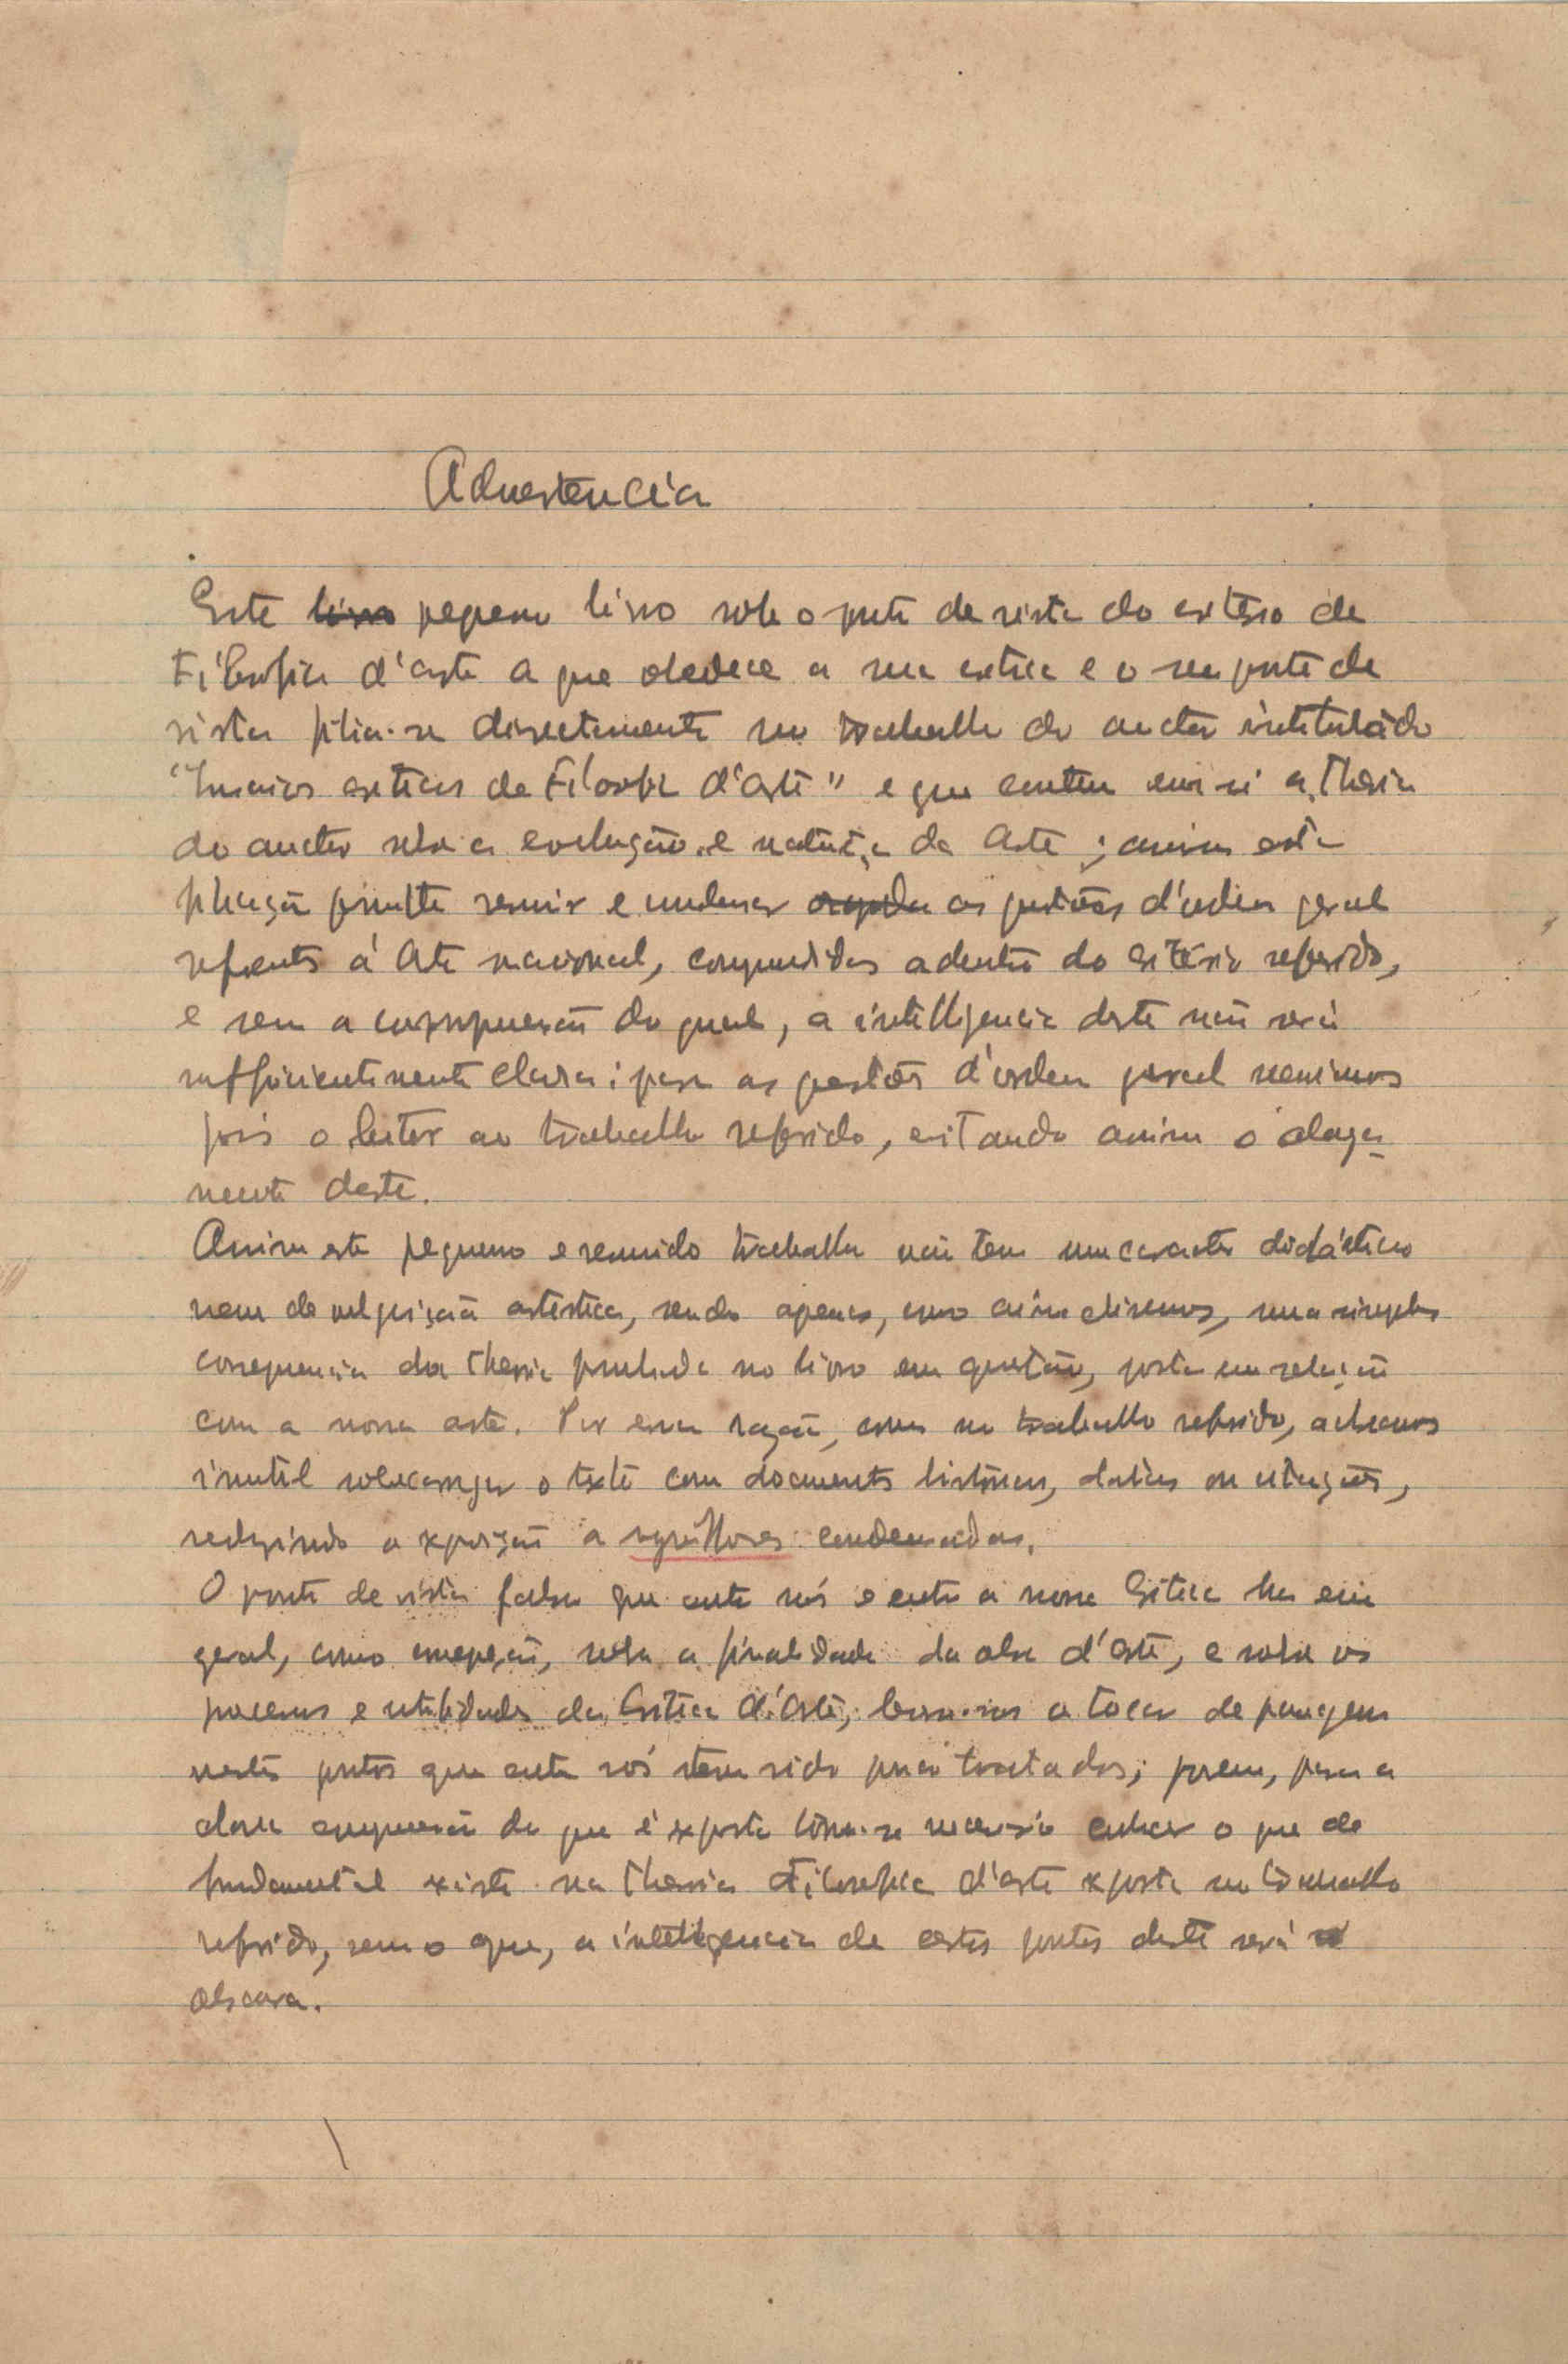 Advertencia
Este livro pequeno livro sobe o ponto de vista do criterio de
Filosofia d'arte a que obedece a sua critica e o seu ponto de
vista filia-se directamente no trabalho do auctor intitulado
"Ensaios criticos de Filosofia d'Arte" e que contem em si a theoria
do auctor sobre a evolução e natureza da Arte; assim esta
filiação permitte resumir e condensar as questões d'ordem geral
referentes á Arte nacional, comprendidas adentro do criterio referido,
e sem a comprpuensão do qual, a intelligencia deste não será
sufficientemente clara; para as questões d'ordem geral
pois o leitor ao trabalho referido, evitando assim o alonga-
mento deste.
Assim este pequeno e resumido trabalho não tem um caracter didáctico
nem de vulgarização artistica, sendo apenas, como acima dissemos, uma simples
consequencia da theoria formulada no livro em questão, posta em relação
com a nossa arte. Por essa razão, como no trabalho referido, achamos
inutil sobrecarregar o texto com documentos historicos, datas ou citações,
reduzindo a exposição a condensadas.
O ponto de vista falso que entre nós e entre a nossa Critica ha em
geral, como concepção, sobre a finalidade da obra d'arte, e sobre os
processos e utilidade da Critica d'Arte, levou-nos a tocar de passagem
nestes pontos que entre nós tem sido pouco tratados; porem, para a
clara compreensão do que é exposto torna-se necessario conhecer o que de
fundamental existe na theoria Filosofica d'arte exposta no trabalho
referido, sem o que, a intelligencia de certos pontos deste será
obscura.